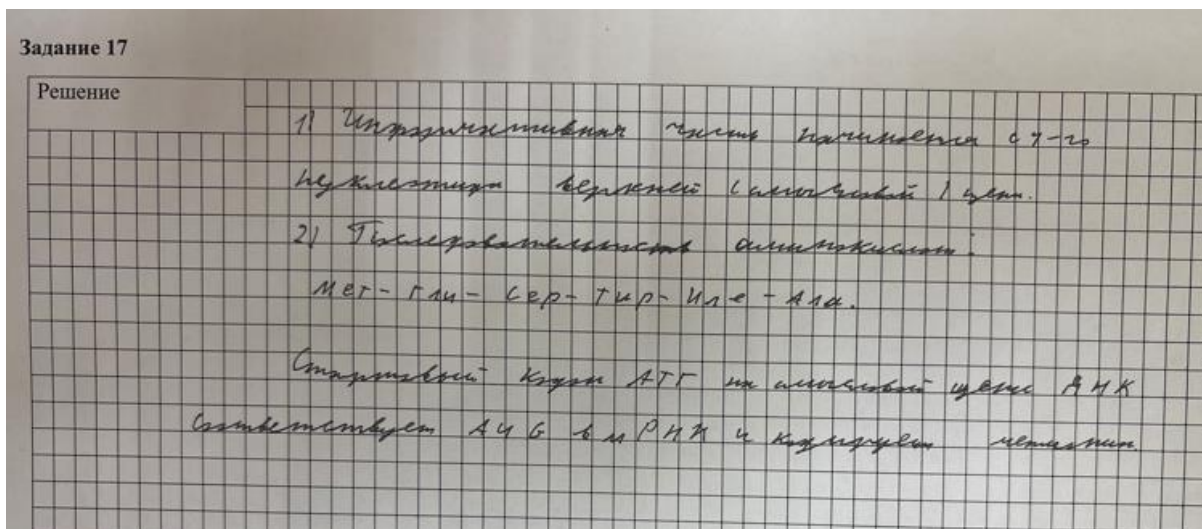 Задание 17
Решение
1) Информативная часть начинается с 7-го
нуклеотида верхней (смысловой) цепи.
2) Последовательность аминокислот:
Мет - Гли - Сер - Тир - Иле - Ала.
Стартовый кодон АТГ на смысловой цепи ДНК
соответствует АУG в мРНК и кодирует метионин.